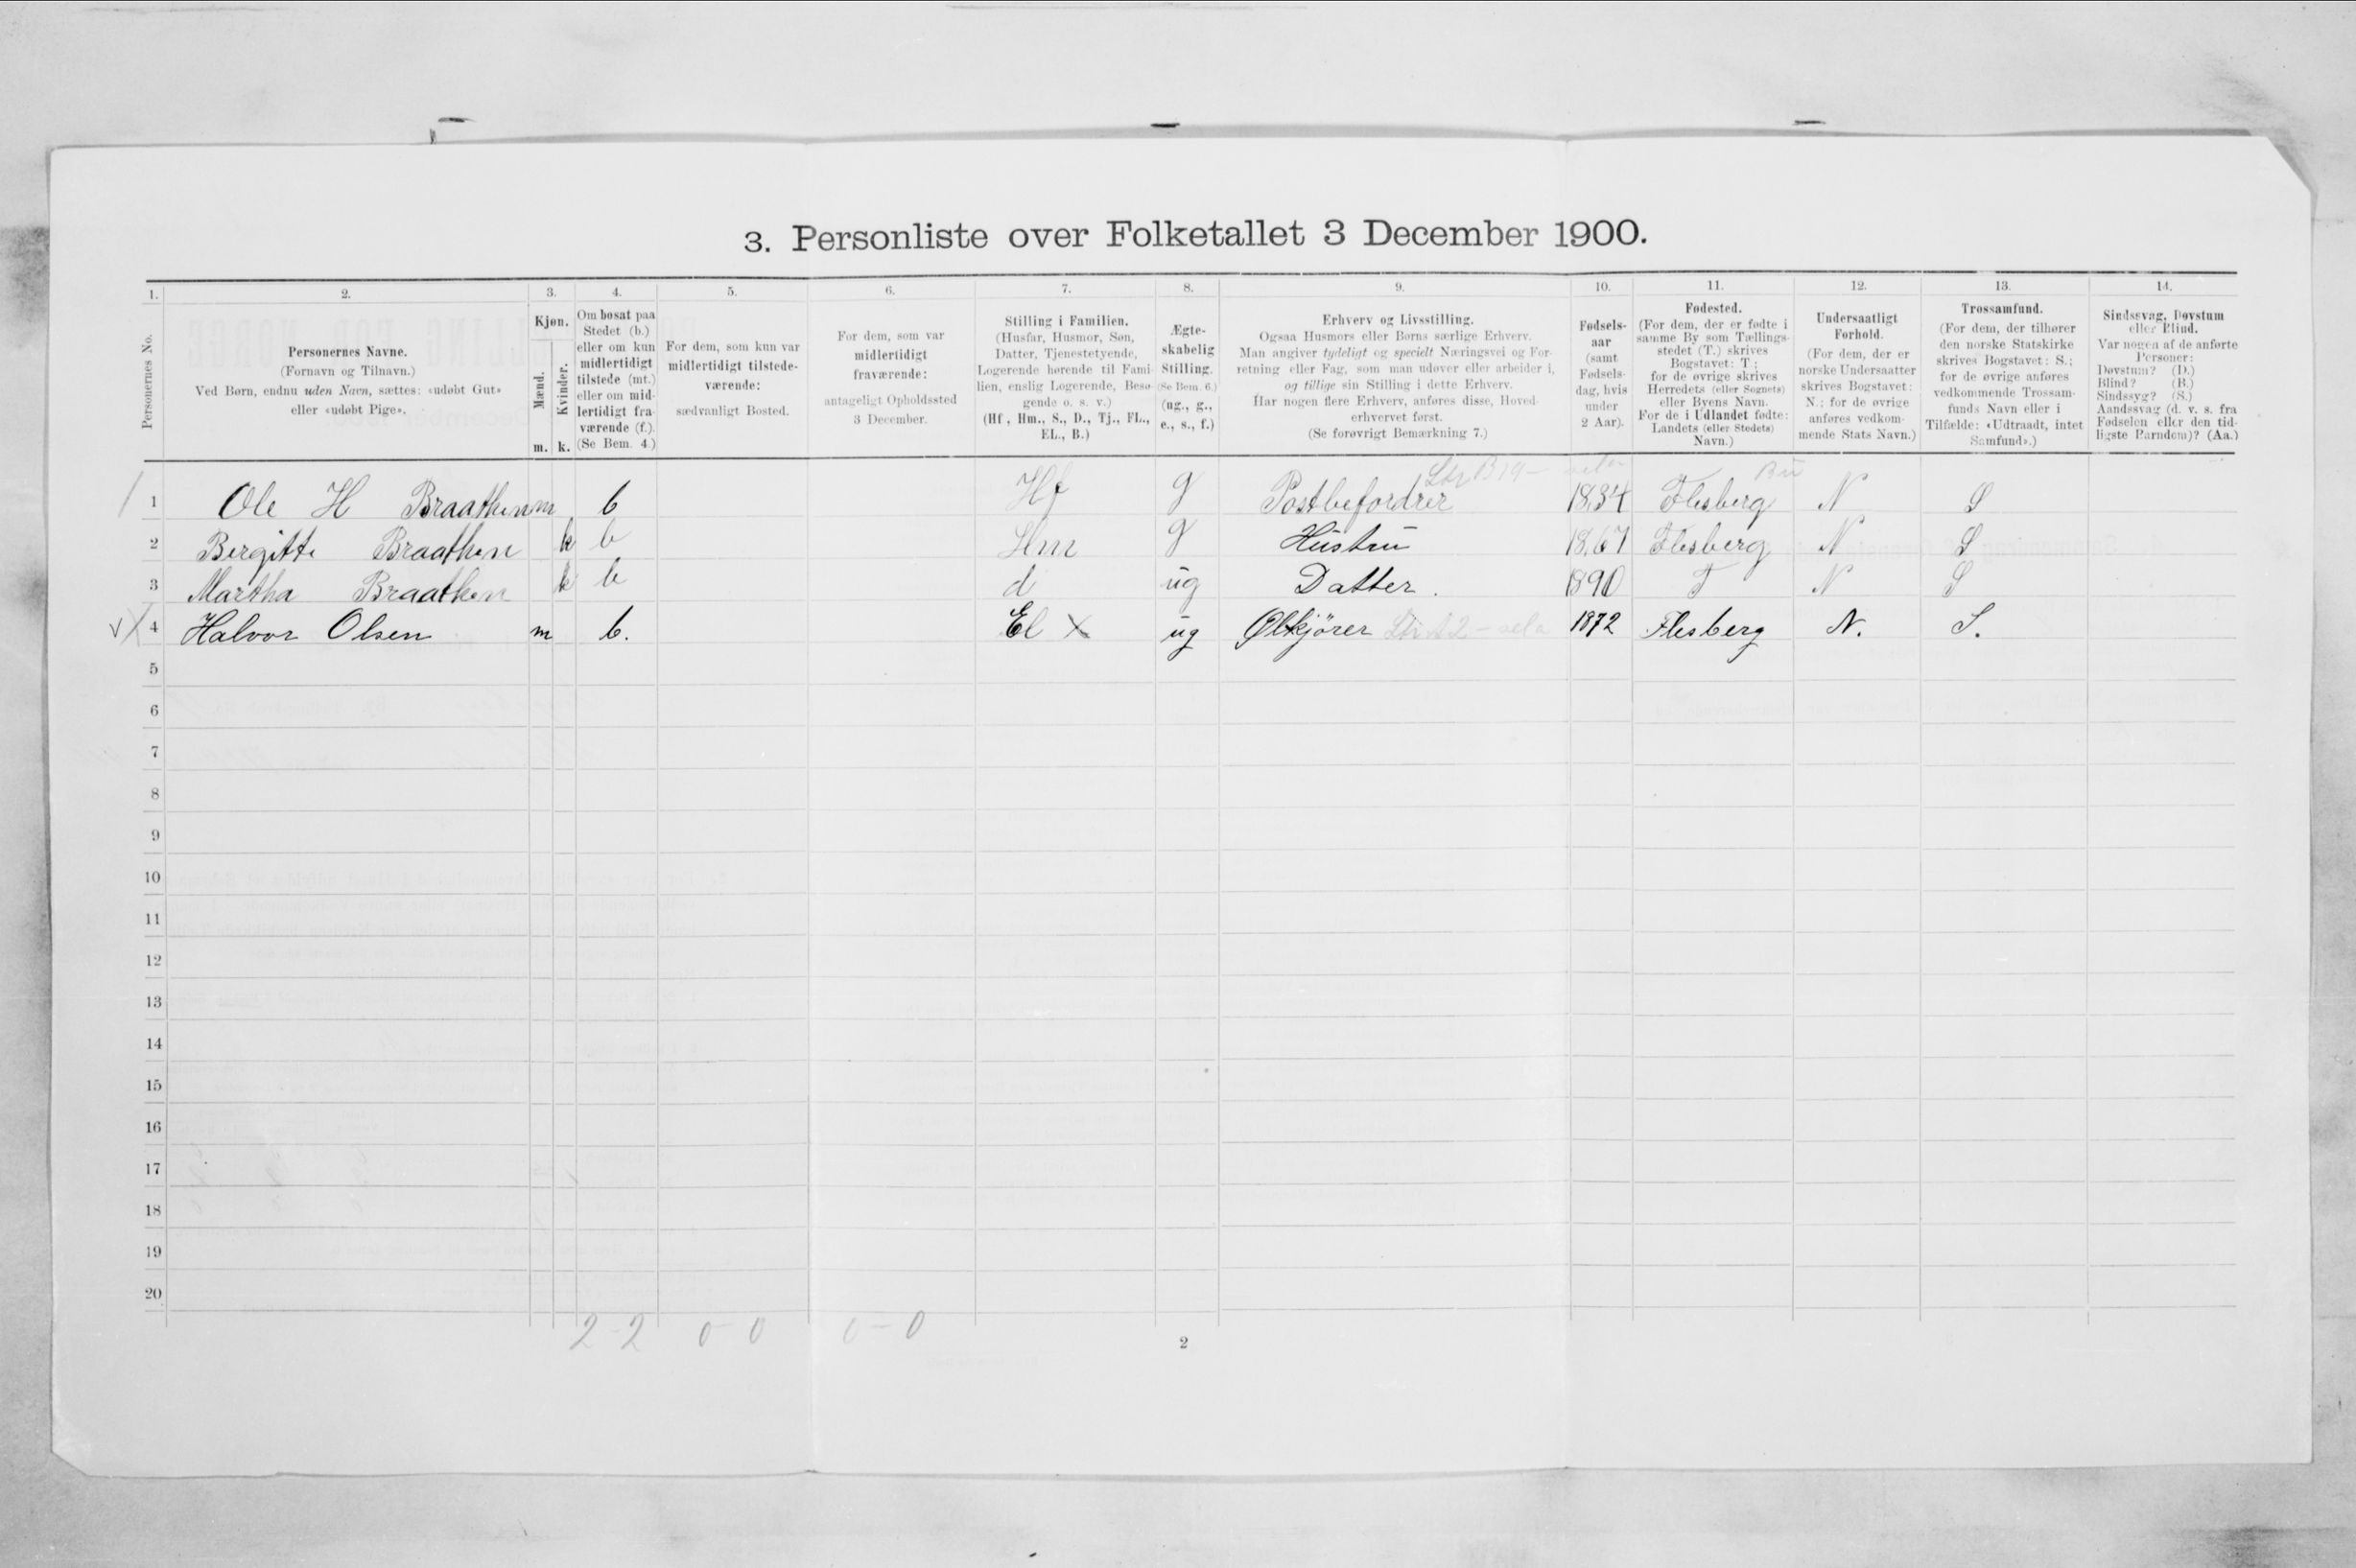 3. Personliste over Folketallet 3 December 1900.
1. 2. 3. 4. 5. 6. 7. 8. 9. 10. 11. 12. 13. 14.
Personernes No.
Personernes Navne.
(Fornavn og Tilnavn.)
Ved Børn, endnu uden Navn, sættes: «udøbt Gut»
eller «udøbt Pige».
Kjøn.
Mænd.
Kvinder.
m. k.
Om bosat paa
Stedet (b.)
eller om kun
midlertidigt
tilstede (mt.)
eller om mid-
lertidigt fra-
værende (f.).
(Se Bem. 4.)
For dem, som kun var
midlertidigt tilstede-
værende:
sædvanligt Bosted.
For dem, som var
midlertidigt
fraværende:
antageligt Opholdssted
3 December.
Stilling i Familien.
(Husfar, Husmor, Søn,
Datter, Tjenestetyende,
Logerende hørende til Fami-
lien, enslig Logerende, Besø-
gende o. s. v.)
(Hf., Hm., S., D., Tj., FL.,
EL., B.)
Ægte-
skabelig
Stilling.
(Se Bem. 6.)
(ug., g.,
e., s., f.)
Erhverv og Livsstilling.
Ogsaa Husmors eller Børns særlige Erhverv.
Man angiver tydeligt og specielt Næringsvei og For-
retning eller Fag, som man udøver eller arbeider i,
og tillige sin Stilling i dette Erhverv.
Har nogen flere Erhverv, anføres disse, Hoved-
erhvervet først.
(Se forøvrigt Bemærkning 7.)
Fødsels-
aar
(samt
Fødsels-
dag, hvis
under
2 Aar).
Fødested.
(For dem, der er fødte i
samme By som Tællings-
stedet (T.) skrives
Bogstavet: T.;
for de øvrige skrives
Herredets (eller Sognets)
eller Byens Navn.
For de i Udlandet fødte:
Landets (eller Stedets)
Navn.)
Undersaatligt
Forhold.
(For dem, der er
norske Undersaatter
skrives Bogstavet:
N.; for de øvrige
anføres vedkom-
mende Stats Navn.)
Trossamfund.
(For dem, der tilhører
den norske Statskirke
skrives Bogstavet: S.;
for de øvrige anføres
vedkommende Trossam-
funds Navn eller i
Tilfælde: «Udtraadt, intet
Samfund».)
Sindssvag, Døvstum
eller Blind.
Var nogen af de anførte
Personer:
Døvstum? (D.)
Blind? (B.)
Sindssyg? (S.)
Aandssvag (d. v. s. fra
Fødselen eller den tid-
ligste Barndom)? (Aa.)
1 Ole H Braathen m b Hf g Postbefordrer 1834 Flesberg N S
2 Bergitte Braathen k b Hm g Hustru 1867 Flesberg N S
3 Martha Braathen k b d ug Datter. 1890 T N S
4 Halvor Olsen m b. El X ug Ølkjører 1872 Flesberg N. S.
5
6
7
8
9
10
11
12
13
14
15
16
17
18
19
20
2-2 0-0 0-0
2